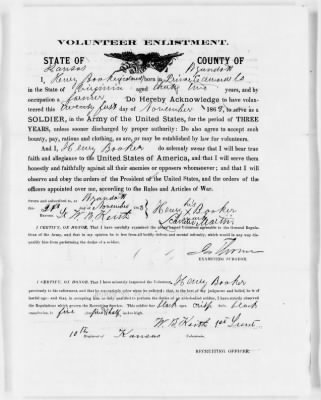 VOLUNTEER ENLISTMENT.
STATE OF COUNTY OF
Kansas Wyandott
I, Henry Booker born in
in the State of Virginia aged thirty two years, and by
occupation a farmer Do Hereby Acknowledge to have volun-
teered this twenty first day of November 186 , to serve as a
SOLDIER, in the Army of the United States, for the period of THREE
YEARS, unless sooner discharged by proper authority: Do also agree to accept such
bounty, pay, rations and clothing, as are, or may be established by law for volunteers.
And I, Henry Booker do solemnly swear that I will bear true
faith and allegiance to the United States of America, and that I will serve them
honestly and faithfully against all their enemies or opposers whomsoever; and that I will
observe and obey the orders of the President of the United States, and the orders of the
officers appointed over me, according to the Rules and Articles of War.
Sworn and subscribed to, at Wyandott
this 21st day of November
Before W. B. Keith
Henry his X Booker
mark
I CERTIFY, ON HONOR, That I have carefully examined the above named Volunteer agreeably to the General Regula-
tions of the Army, and that in my opinion he is free from all bodily defects and mental infirmity, which would in any way dis-
qualify him from performing the duties of a soldier.
EXAMINING SURGEON.
I CERTIFY, ON HONOR, That I have minutely inspected the Volunteer, Henry Booker
previously to his enlistment, and that he was entirely sober when he enlisted; that, to the best of my judgment and belief, he is of
lawful age; and that, in accepting him as duly qualified to perform the duties of an able-bodied soldier, I have strictly observed
the Regulations which govern the Recruiting Service. This soldier has black eyes, crisp hair, black
complexion, is five feet high.
W. B. Keith 1st Lieut
10th Regiment of Kansas Volunteers,
RECRUITING OFFICER.